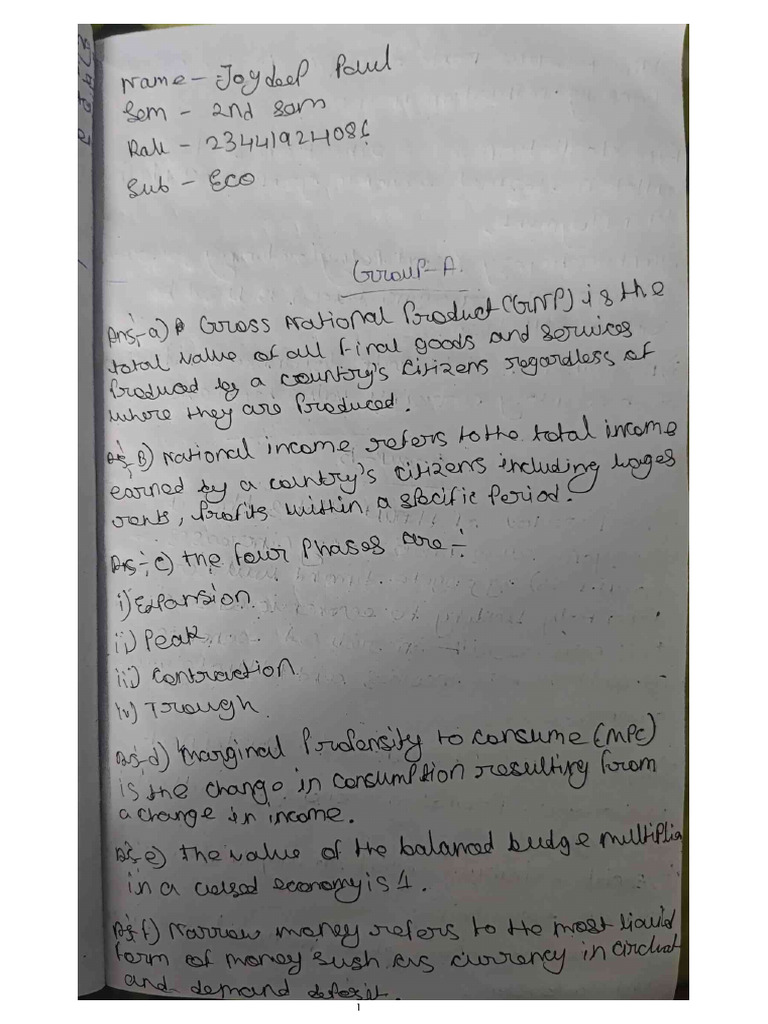 Name - Joydeep Paul
Sem - 2nd Sam
Roll - 23441924086
Sub - Eco
Group-A.
Ans-a) Gross National Product (GNP) is the
total value of all final goods and services
Produced by a country's citizens regardless of
where they are Produced.
As-B) National income refers to the total income
earned by a country's citizens including wages
rents, Profits within a specific Period.
As-c) the four Phases are :-
i) Expansion
ii) Peak
iii) contraction
iv) Trough
As-d) Marginal Propensity to consume (MPC)
is the change in consumption resulting from
a change in income.
As-e) the value of the balanced budge multiplie
in a closed economy is 1.
As-f) Narrow money refers to the most liquid
form of money sush as currency in circulat
and demand deposit.
1